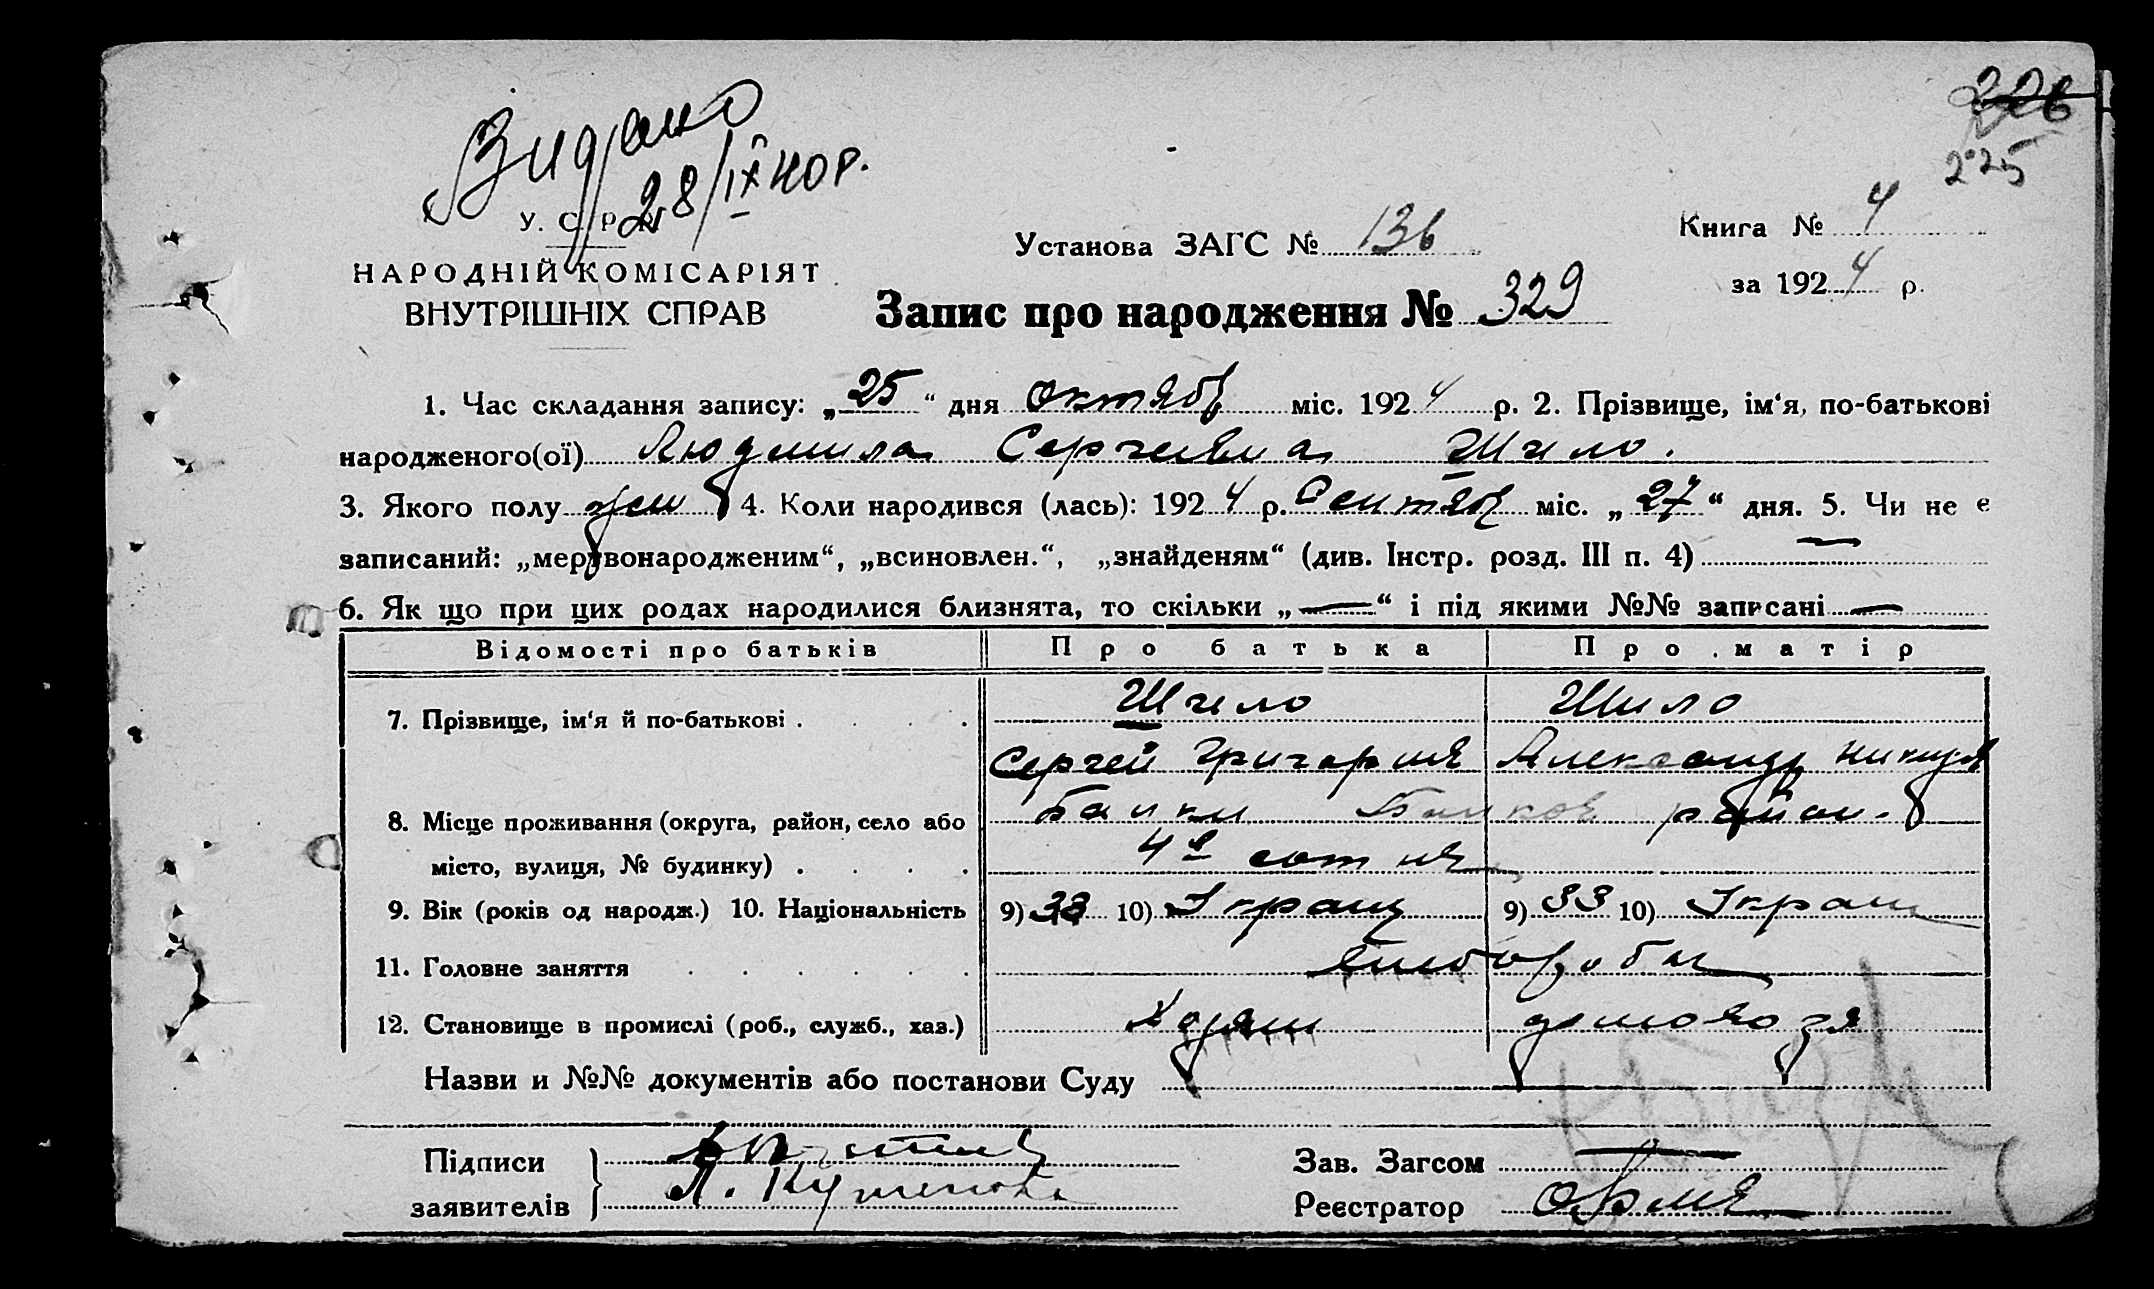 226
225
Видано
28/IX 40 р.
У. С. Р. Р.
НАРОДНІЙ КОМІСАРІЯТ
ВНУТРІШНІХ СПРАВ
Установа ЗАГС № 136
Книга № 4
за 1924 р.
Запис про народження № 329
1. Час складання запису: „25“ дня октяб міс. 1924 р. 2. Прізвище, ім'я, по-батькові
народженого(ої) Людмила Сергеевна Шило.
3. Якого полу жен 4. Коли народився (лась): 1924 р. Сентяб міс. „27“ дня. 5. Чи не є
записаний: „мертвонародженим“, „всиновлен.“, „знайденям“ (див. Інстр. розд. III п. 4) —
6. Як що при цих родах народилися близнята, то скільки „—“ і під якими №№ записані —
Відомості про батьків Про батька Про матір
7. Прізвище, ім'я й по-батькові . . . . Шило Шило
Сергей Григория Александр
8. Місце проживання (округа, район, село або
місто, вулиця, № будинку) . . . . 4я сотня
9. Вік (років од народж.) 10. Національність 9) 38 10) Украи 9) 33 10) Украи
11. Головне заняття . . . . . .
12. Становище в промислі (роб., служб., хаз.) Хозяин домохозя
Назви и №№ документів або постанови Суду
Підписи
заявителів
Зав. Загсом
Реєстратор